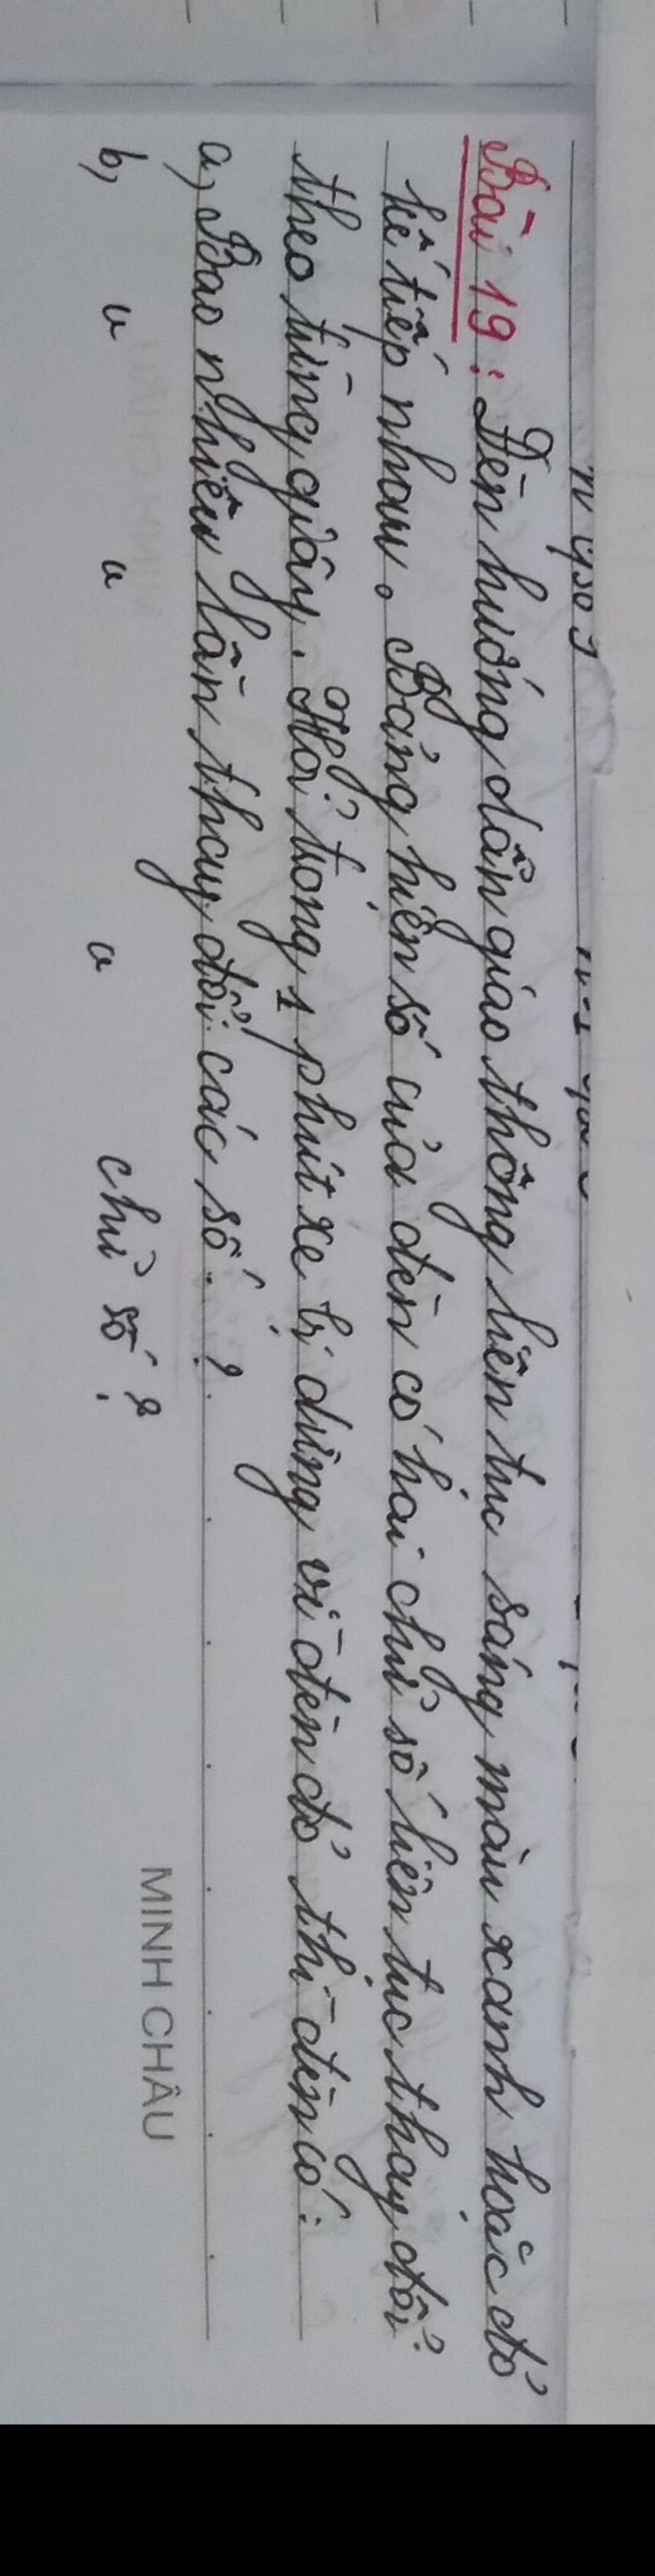 Bài 19: Đèn hướng dẫn giao thông liên tục sáng màu xanh hoặc đỏ
kế tiếp nhau. Bảng hiện số của đèn có hai chữ số liên tục thay đổi
theo từng giây. Hỏi trong 1 phút xe bị dừng vì đèn đỏ thì đèn có:
a, Bao nhiêu lần thay đổi các số?
b, u u u chữ số?
MINH CHÂU